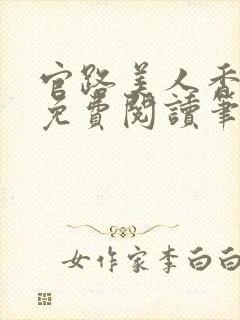 官路美人香
免費閱讀筆
女作家李白白